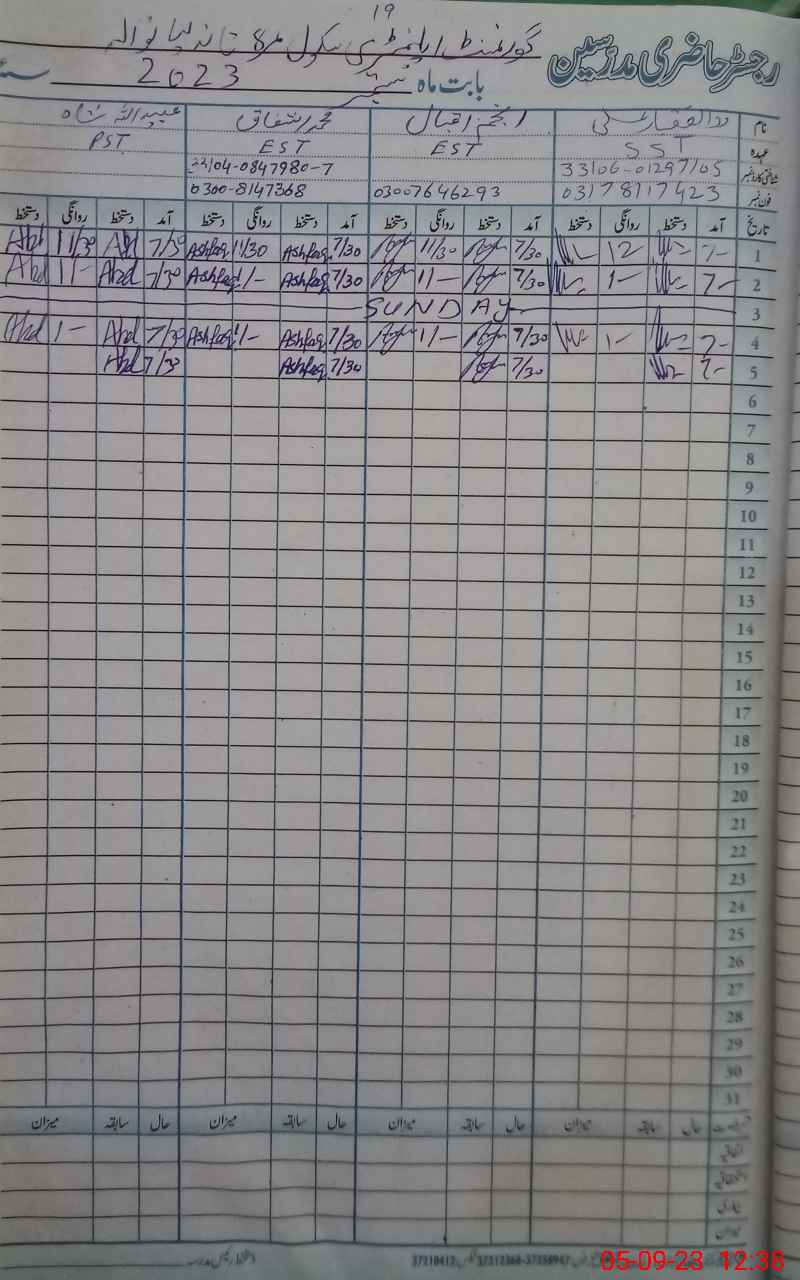 19
رجسٹر حاضری مدرسین گورنمنٹ ایلیمنٹری سکول
بابت ماہ ستمبر 2023
نام ذوالفقار علی انجم اقبال محمد اشفاق عبیداللہ شاہ
عہدہ SST EST EST PST
شناختی کارڈ نمبر 33106-01297105 33104-0847980-7
فون نمبر 03178117423 03007646293 0300-8147368
تاریخ آمد دستخط روانگی دستخط آمد دستخط روانگی دستخط آمد دستخط روانگی دستخط آمد دستخط روانگی دستخط
1 7- 12 7/30 11/30 7/30 Ashfaq 11/30 Ashfaq 7/30 Abd 11/30 Abd
2 7- 1- 7/30 11- 7/30 Ashfaq 1/- Ashfaq 7/30 Abd 11- Abd
3 SUNDAY
4 7- 1- 7/30 11- 7/30 Ashfaq 1/- Ashfaq 7/30 Abd 1- Abd
5 7- 7/30 7/30 Ashfaq 7/30 Abd
6
7
8
9
10
11
12
13
14
15
16
17
18
19
20
21
22
23
24
25
26
27
28
29
30
31
حال سابقہ میزان حال سابقہ میزان حال سابقہ میزان حال سابقہ میزان
اتفاقیہ
37210412 37312368-37358947
05-09-23 12:38